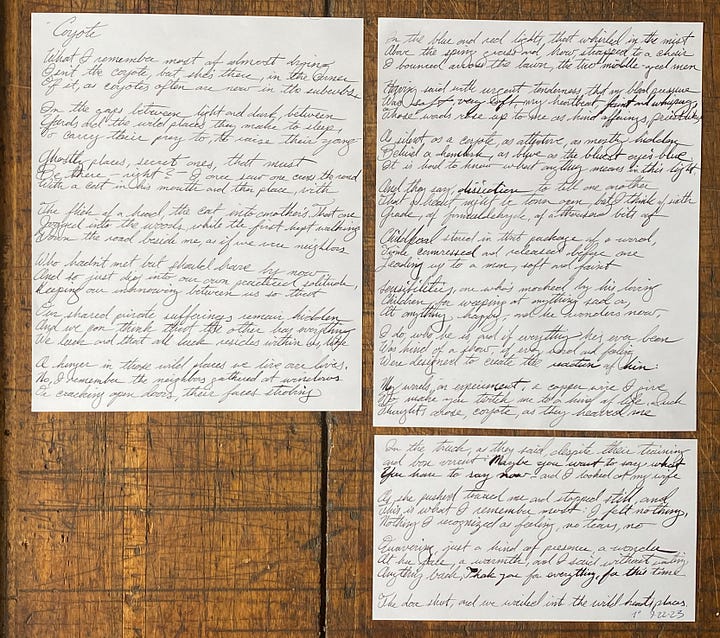 Coyote
What I remember most of almost dying
Isn't the coyote, but she's there, in the corner
Of it, as coyotes often are now in the suburbs,
In the gaps between light and dark, between
Yards and the wild places they make to sleep,
To carry their prey to, to raise their young
Ghostly places, secret ones, that must
Be there – right? – I once saw one cross the road
With a cat in his mouth and then place, with
The flick of a head, the cat into another's. That one
Jogged into the woods while the first kept walking
Down the road beside me as if we were neighbors
Who hadn't met but should have by now,
And so just slip into our own practiced solitude,
Keeping our unknowing between us so that
Our shared private sufferings remain hidden
And we can think that the other has everything
We lack and that all luck resides within us, like
A hunger in those wild places we live our lives.
No, I remember the neighbors gathered at windows
Or cracking open doors, their faces strobing
In the blue and red lights that whirled in the mist
Above the spring grass and how, strapped to a chair
I bounced across the lawn the two middle aged men
Having said with urgent tenderness that my blood pressure
Was soft, very soft, my heartbeat, faint and whispering,
Whose words rose up to me as kind offerings, priestly
As silent, as a coyote, as attentive, as mostly hidden
Behind a hemlock, as blue as the bluest eye's blue
It is hard to know what anything means in this light
And they say, dissection, to tell one another
That a heart might be torn open, but I think of sixth
Grade, of formaldehyde, of a thousand bits of
Childhood stored in that package of a word,
Time compressed and released before one
Leading up to a man, soft and faint
Sensibilities, one who's mocked by his loving
Children for weeping at anything sad or,
At anything, happy, and he wonders now,
I do, who he is, and if everything he's ever been
Was kind of a show, if every word and feeling
Were designed to create the reaction of him:
My words, an experiment, a copper wire I give
You to make you touch me to a kind of life. Such
Thoughts arose, coyote, as they heaved me
In the truck, as they said, despite their training
and box variant Maybe you want to say what
You have to say now – and I looked at my wife
As she pushed toward me and stopped still, and
This is what I remember most: I felt nothing,
Nothing I recognized as feeling, no tears, no
Quavering, just a kind of presence, a wonder
At her face, a warmth, and I said without waiting
Anything back, Thank you for everything, for this time
The door shut, and we wailed into the wild heart's places.
9-22-23